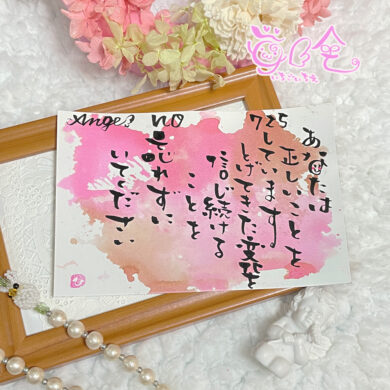 あなたは
正しいことを
725
しています
とげてきた変容を
信じ続ける
ことを
no
忘れずに
いてください
Angel